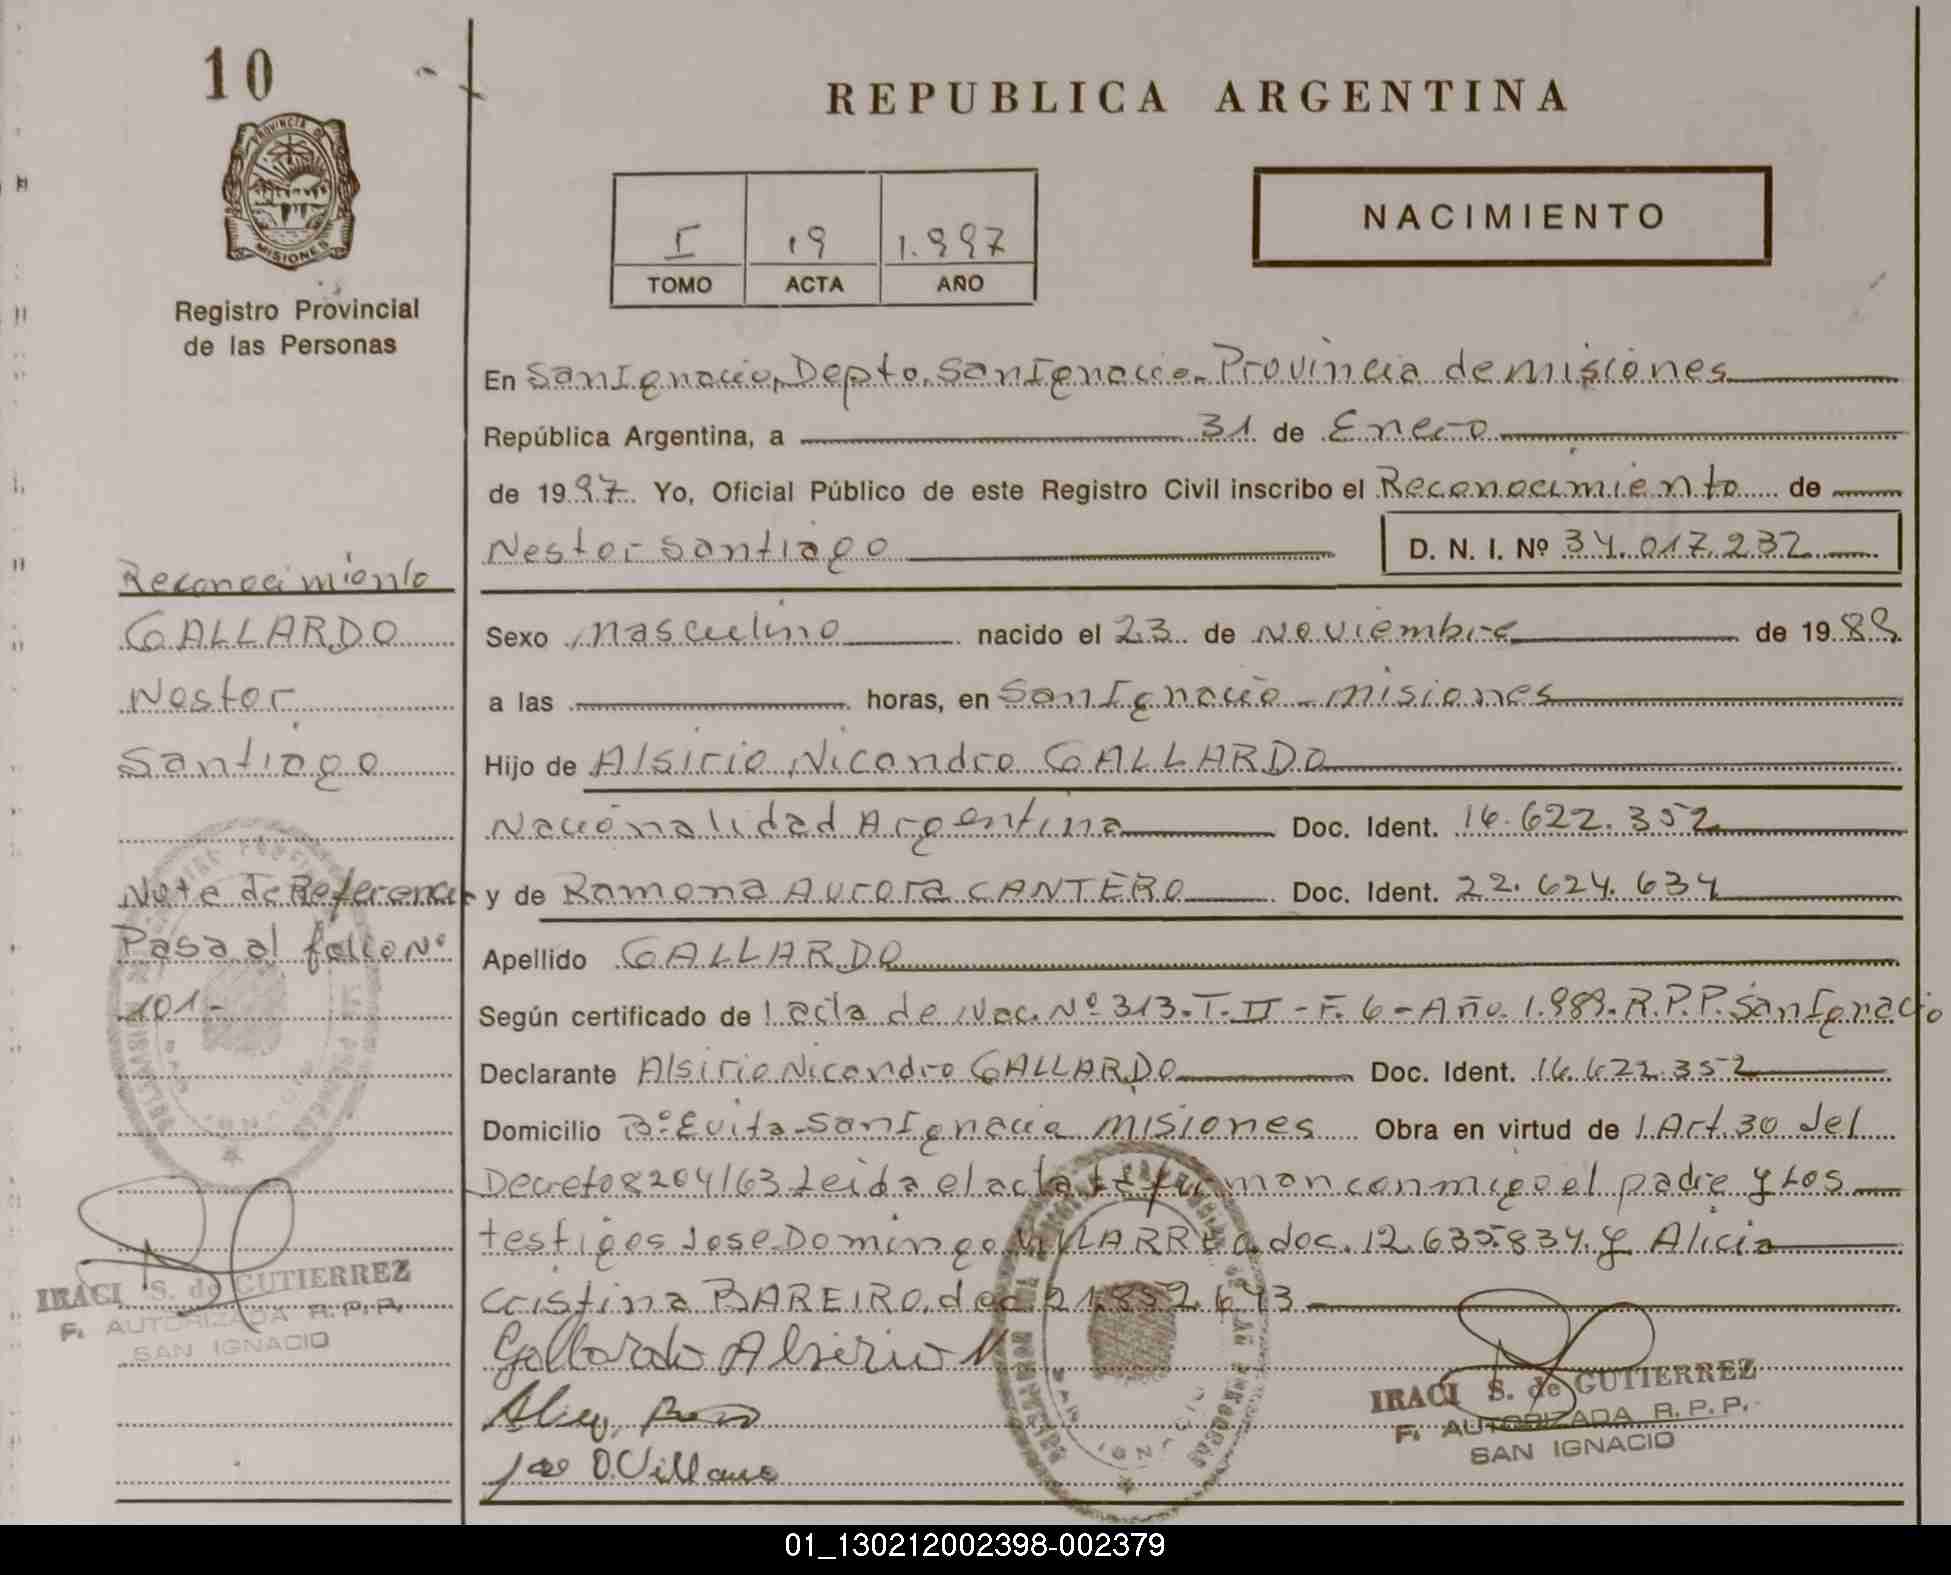 10
PROVINCIA DE
MISIONES
Registro Provincial
de las Personas
REPUBLICA ARGENTINA
I 19 1.997
TOMO ACTA AÑO
NACIMIENTO
En San Ignacio, Depto. San Ignacio. Provincia de misiones
República Argentina, a 31 de Enero
de 1997. Yo, Oficial Público de este Registro Civil inscribo el Reconocimiento de
Nestor Santiago D. N. I. Nº 34.017.232
Reconocimiento
GALLARDO
Nestor
Santiago
Nota de Referencia
Pasa al folio Nº
101-
IRACI S. de GUTIERREZ
F. AUTORIZADA R. P. P.
SAN IGNACIO
Sexo Masculino nacido el 23 de Noviembre de 1989
a las horas, en San Ignacio - misiones
Hijo de Alsirio Nicandro GALLARDO
Nacionalidad Argentina Doc. Ident. 16.622.352
y de Ramona Aurora CANTERO Doc. Ident. 22.624.634
Apellido GALLARDO
Según certificado de l acta de Nac. Nº 313-T.II-F.6-Año 1.989-R.P.P. San Ignacio
Declarante Alsirio Nicandro GALLARDO Doc. Ident. 16.622.352
Domicilio Bº Evita-San Ignacio misiones Obra en virtud de l Art.30 del
Decreto 8204/63 Leida el acta la firman conmigo el padre y Los
testigos Jose Domingo doc. 12.635.834 y Alicia
Cristina BAREIRO, doc 21.852.643
Gallardo Alsirio N
IRACI S. de GUTIERREZ
F. AUTORIZADA R. P. P.
SAN IGNACIO
01_130212002398-002379